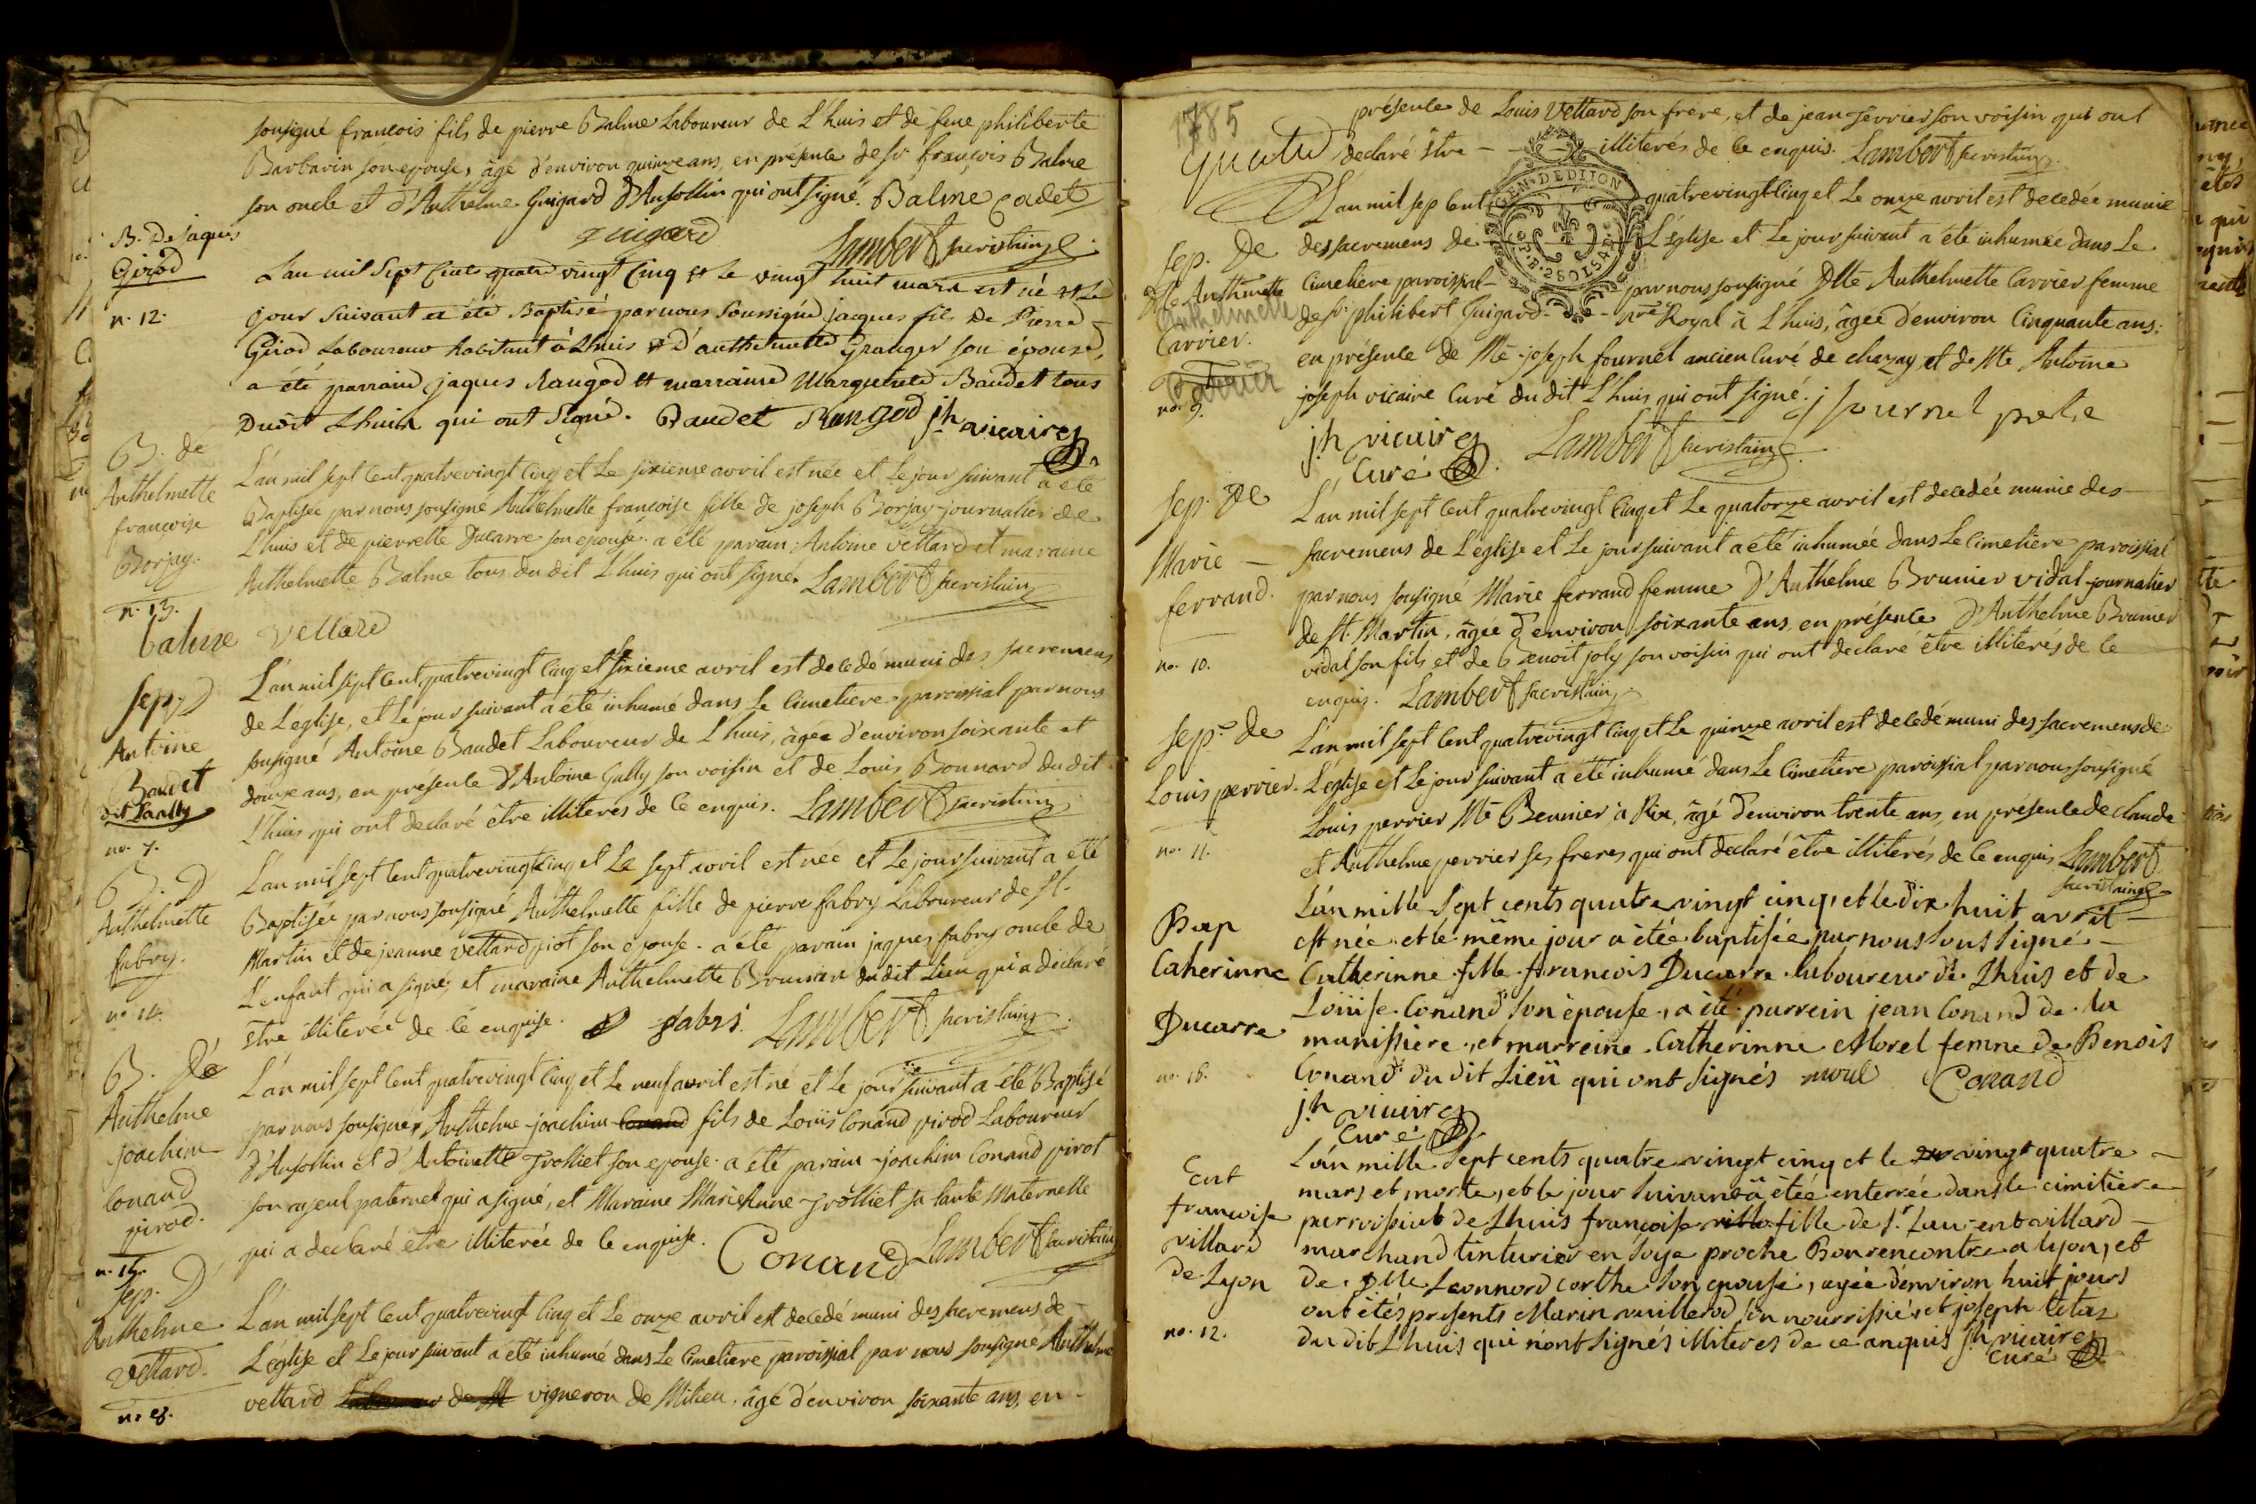 sousigné françois fils de pierre Balme Laboureur de L'huis et de feue philiberte
Barbarin son epouse, âgé d'environ quinze ans, en présence de sr. françois Balme
son oncle et d'Anthelme Guigard d'Ansollin qui ont signé. Balme Cadet
guigard Lambert sacristain
B. De jaques
Girod
n. 12.
L'an mil Sept Cent quatre vingt Cinq et Le vingt huit mars est né et Le
jour Suivant a été Baptisé par nous Soussigné, jacques fils De Pierre
Girod Laboureur habitant à Lhuis et d'anthelmette Granger son épouse,
a été parrain jaques Raugod et marraine Marguerite Baudet tous
Dudit Lhuis qui ont Signé. Baudet Raugod jh. vicaire
B. de
Anthelmette
francoise
Borjay.
n. 13.
L'an mil sept Cent quatrevingt Cinq et Le sixieme avril est née et Le jour suivant a été
Baptisée par nous sousigné Anthelmette françoise fille de joseph Borjay journalier de
L'huis et de pierrette Ducarre son epouse. a été parain Antoine vettard et maraine
Anthelmette Balme tous du dit L'huis qui ont signé. Lambert sacristain
balme vettard
sep. D
Antoine
Baudet
no. 7.
L'an mil sept Cent quatrevingt Cinq et sixieme avril est decedé muni des sacremens
de L'eglise, et Le jour suivant a été inhumé dans Le Cimetiere paroissial par nous
sousigné Antoine Baudet Laboureur de L'huis, âgée d'environ soixante et
douze ans, en présence d'Antoine Gully son voisin et de Louis Bonnard du dit
L'huis qui ont declaré être illiterés de Ce enquis. Lambert sacristain
B. D
Anthelmette
fabry.
no 14.
L'an mil sept Cent quatrevingt Cinq et Le sept avril est née et Le jour suivant a été
Baptisée par nous sousigné Anthelmette fille de pierre fabry Laboureur de St.
Martin et de jeanne vettard piot son epouse. a été parain jaques fabry oncle de
L'enfant qui a signé, et maraine Anthelmette Brunier du dit Lieu qui a déclaré
être illiterée de Ce enquise. fabri. Lambert sacristain
B. De
Anthelme
joachim
Conand
pirod.
n. 15.
L'an mil sept Cent quatrevingt Cinq et Le neuf avril est né et Le jour suivant a été Baptisé
par nous sousigné, Anthelme joachim Conand fils de Louis Conand pirod Laboureur
d'Ansollin et d'Antoinette Trolliet son epouse. a été parain joachim Conand pirot
son ayeul paternel qui a signé, et Maraine Marie Anne Trolliet sa tante Maternelle
qui a declaré être illiterée de Ce enquise. Conand Lambert sacristain
sep. D
Anthelme
vettard.
n. 8.
L'an mil sept Cent quatrevingt Cinq et Le onze avril est decedé muni des sacremens de
L'église et Le jour suivant a été inhumé dans Le Cimetiere paroissial par nous sousigné Anthelme
vettard vigneron de Milieu. âgé d'environ soixante ans, en
1785
quatre
présence de Louis Vettard son frere, et de jean fevrier son voisin qui ont
declaré être illiterés de Ce enquis. Lambert sacristain
GEN. DE DIJON
sep. De
Dlle Anthmette
Anthelmette
Carrier.
Carrier
no. 9.
L'an mil sept Cent quatrevingt Cinq et Le onze avril est decedée munie
des sacremens de L'Eglise et Le jour suivant a été inhumée dans Le
Cimetiere paroissial par nous sousigné Dlle Anthelmette Carrier femme
de sr. philibert Guigard nre Royal à Lhuis, âgée d'environ Cinquante ans.
en présence de Mre joseph fournel ancien Curé de chazay et de Mre Antoine
joseph vicaire Curé du dit L'huis qui ont signé. j fournel prêtre
jh vicaire
Curé Lambert sacristain
sep. De
Marie
ferrand.
no. 10.
L'an mil sept Cent quatrevingt Cinq et Le quatorze avril est decedée munie des
sacremens de L'eglise et Le jour suivant a été inhumée dans Le Cimetiere paroissial
par nous sousigné Marie ferrand femme D'Anthelme Brunier vidal journalier
de St. Martin, âgée d'environ soixante ans, en présence d'Anthelme Brunier
vidal son fils et de Benoit joly son voisin qui ont declaré être illiterés de Ce
enquis. Lambert sacristain
sep. de
Louis perrier.
no. 11.
L'an mil sept Cent quatrevingt Cinq et Le quinze avril est decedé muni des sacremens de
L'église et Le jour suivant a été inhumé dans Le Cimetiere paroissial par nous sousigné
Louis perrier Me Beunier à Rix, âgé d'environ trente ans, en présence de claude
et Anthelme perrier ses freres qui ont declaré être illiterés de Ce enquis Lambert
sacristain
Bap
Caherinne
Ducarre
no. 16.
L'an mille Sept cents quatre vingt cinq, et le dix huit avril
est née et le même jour a étée baptisée par nous sous signé
Catherinne fille francois Ducarre laboureur de Lhuis et de
Loüise Conand son épouse, a été parrein jean Conand de la
manissiere, et marreine Catherinne Morel femme de Benois
Conand du dit Lieu qui ont signés morel Conand
jh vicaire
Curé
Ent
francoise
villard
de Lyon
no. 12.
L'an mille Sept cents quatre vingt cinq et le vingt quatre
mars et morte, et le jour suivant a étée enterrée dans le cimitiere
parroissial de Lhuis françoise fille de sr Laurent villard
marchand tinturier en soye proche Bonrencontre a lyon, et
de Dlle Leonnord corthe son epouse, agée d'environ huit jours
ont étés presents Marin vuillerod son nourrissier et joseph titaz
du dit Lhuis qui n'ont signés illiteres de ce anquis jh vicaire
Curé